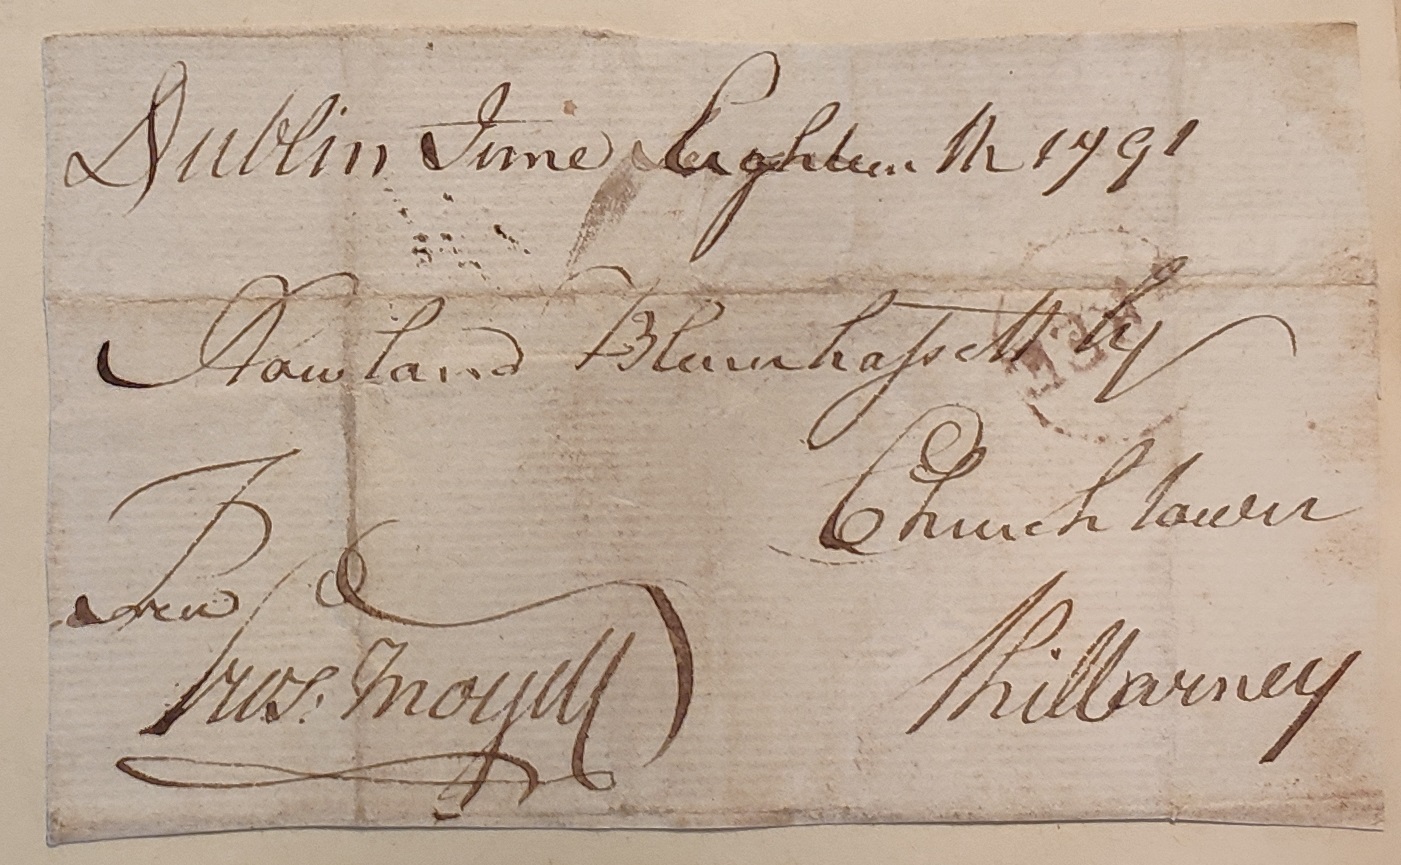 Dublin June Eighteenth 1791
Rowland Blennerhassett
Churchtown
Killarney
Free
Thos. Moyell